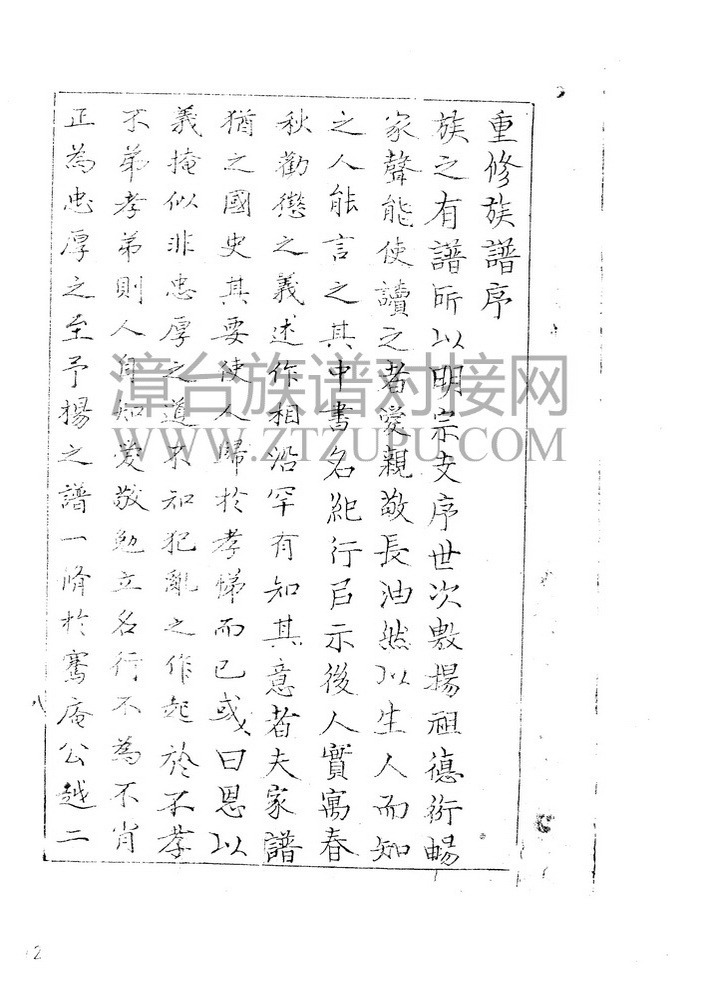 重修族譜序
族之有譜所以明宗支序世次敷揚祖德衍暢
家聲能使讀之者愛親敬長油然以生人而知
之人能言之其中書名紀行㠯示後人實寓春
秋勸懲之義述作相沿罕有知其意者夫家譜
猶之國史其要使人歸於孝悌而已或曰恩以
義掩似非忠厚之道不知犯亂之作起於不孝
不弟孝弟則人自知愛敬勉立名行不為不肖
正為忠厚之至予楊之譜一脩於騫庵公越二
漳台族谱对接网
WWW.ZTZUPU.COM
八
12